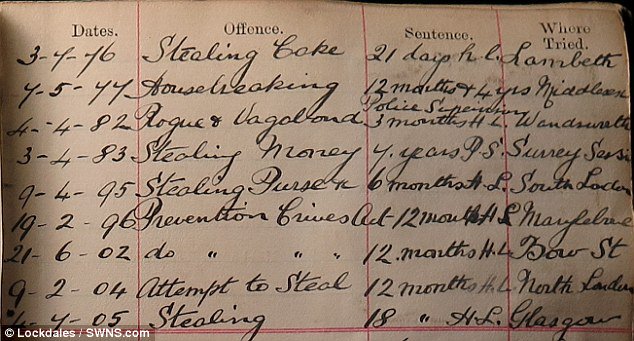 Dates. Offence. Sentence. Where Tried.
3-4-76 Stealing Coke 21 days h.l. Lambeth
7-5-77 Housebreaking 12 months & 4 yrs Middlesex
Police Supervision
4-4-82 Rogue & Vagabond 3 months H.L. Wandsworth
3-4-83 Stealing Money 7. years P.S. Surrey Sess
9-4-95 Stealing Purse 6 months H.L. South London
19-2-96 Prevention Crives Act 12 months H.L. Marylebone
21-6-02 do " " " 12 months H.L. Bow St
9-2-04 Attempt to Steal 12 months H.L. North London
4-05 Stealing 18 " H.L. Glasgow
© Lockdales / SWNS.com